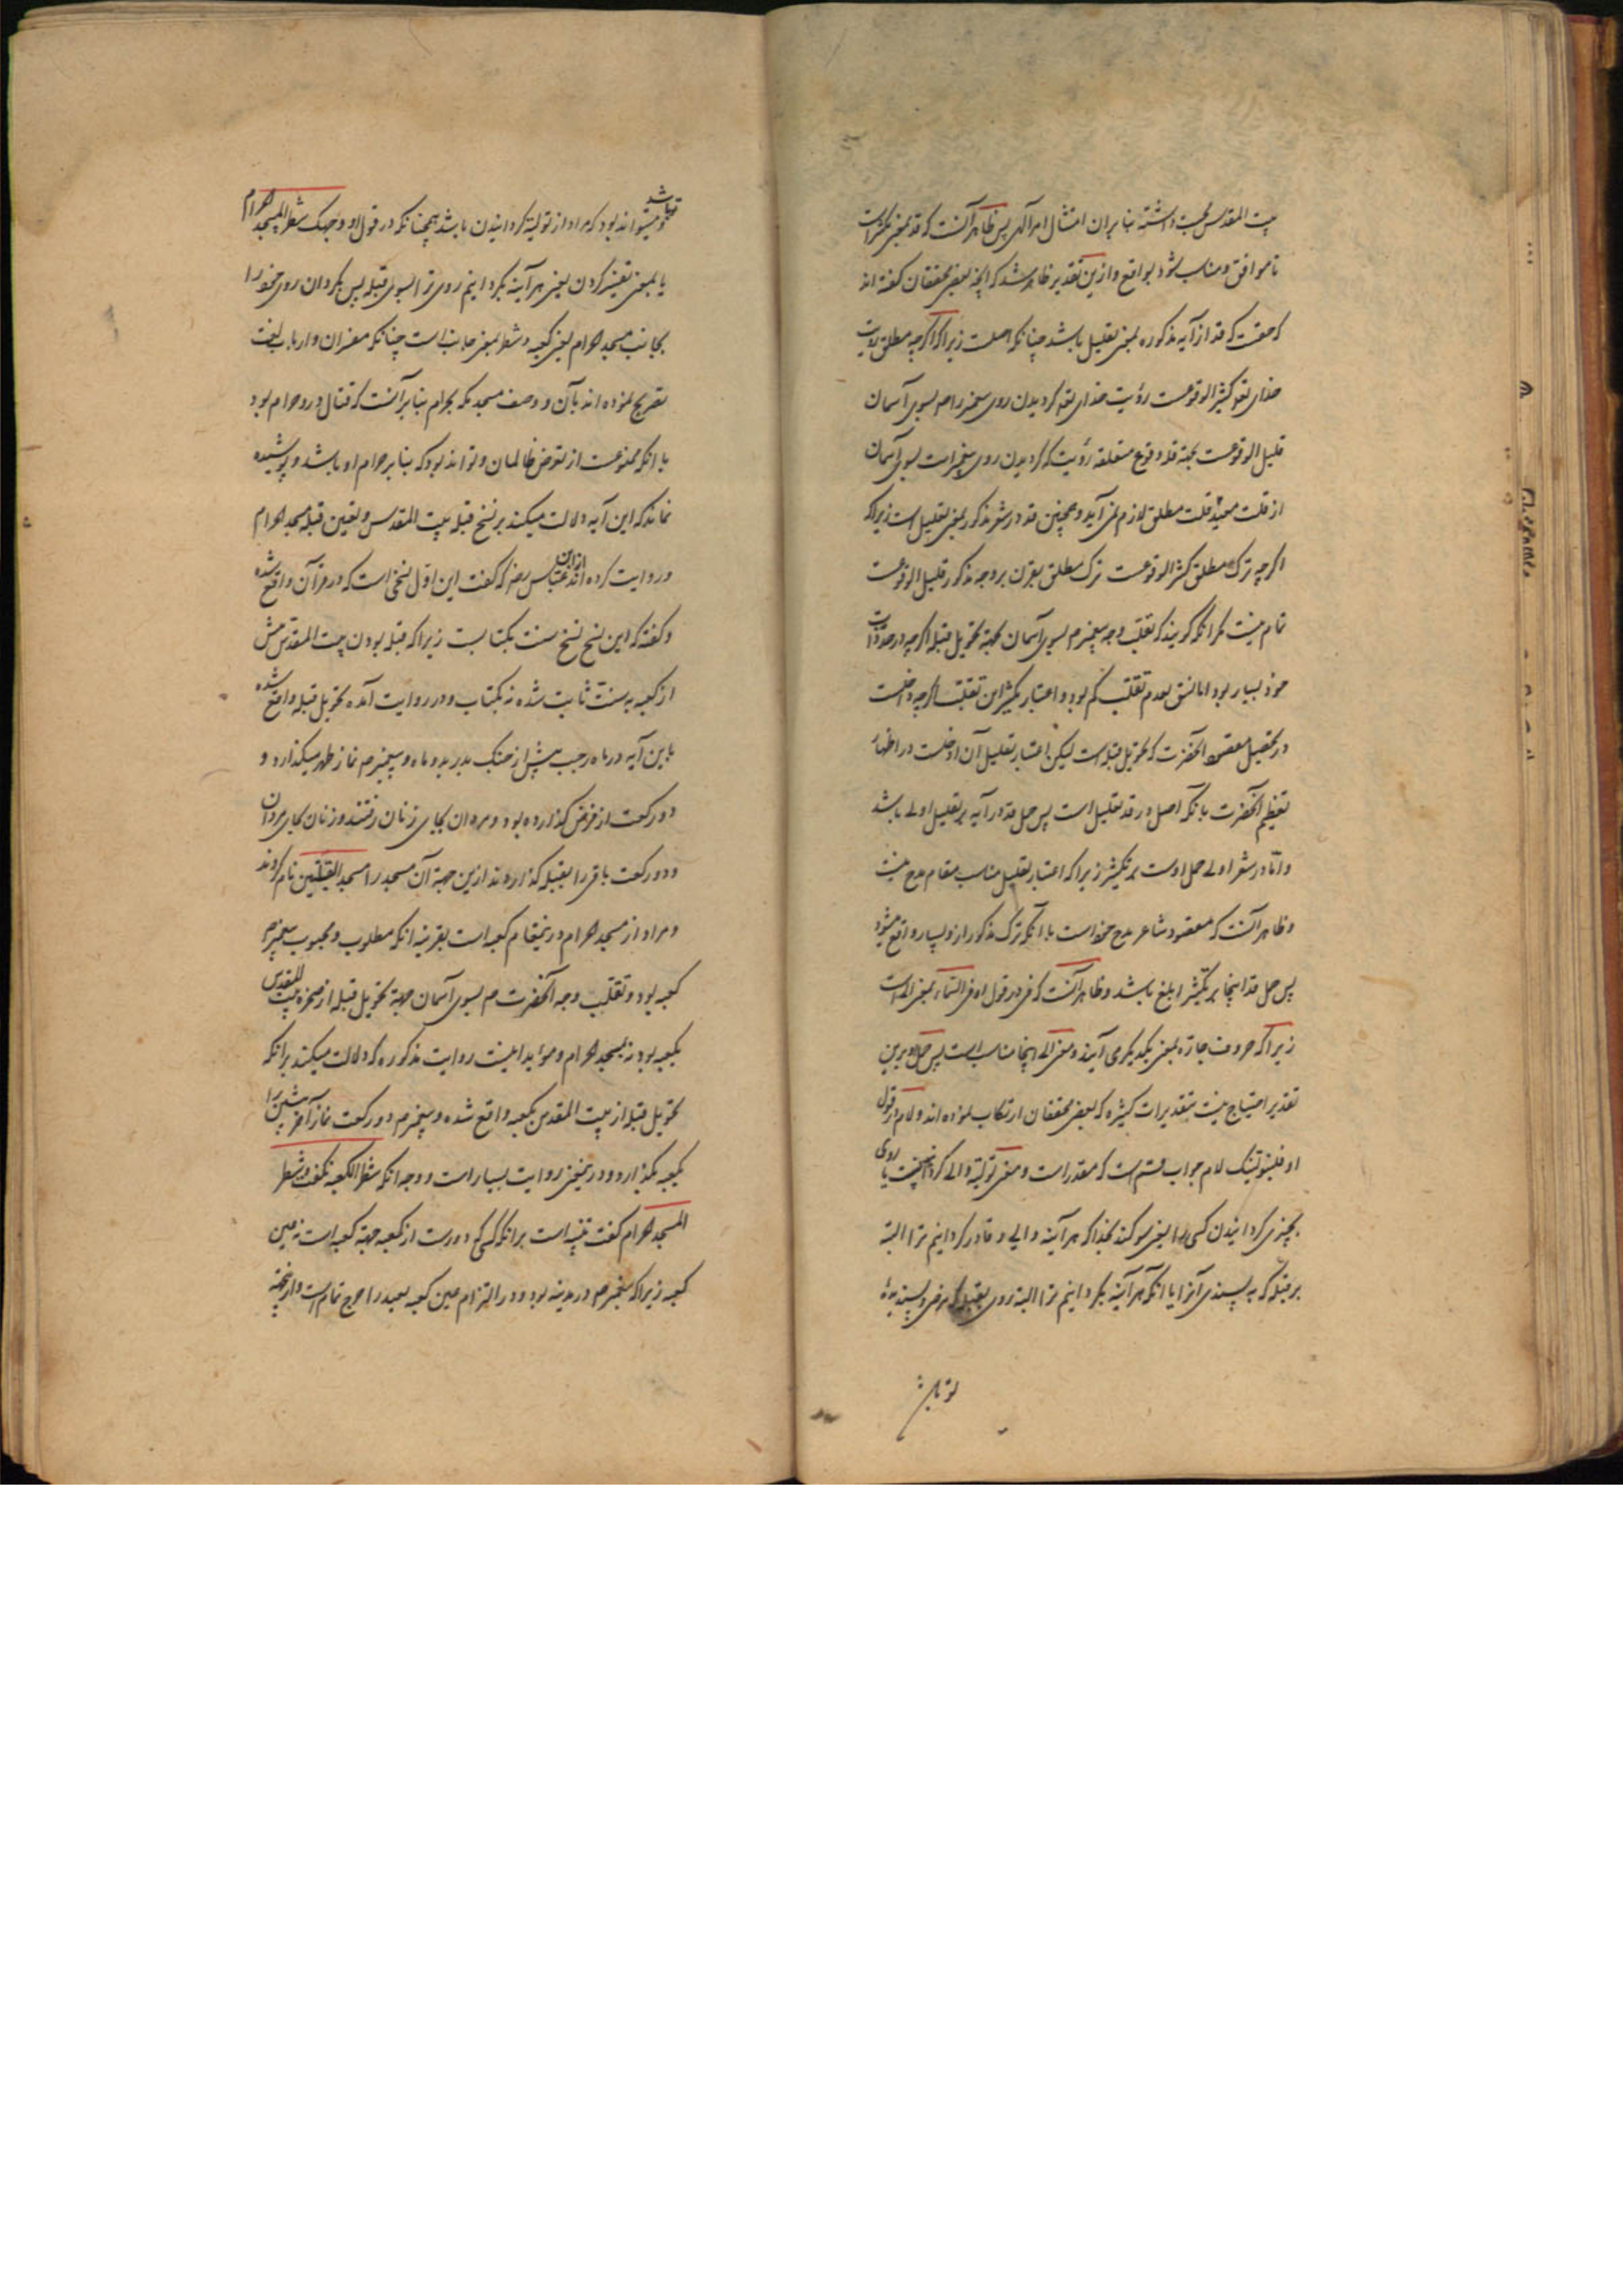 بیت المقدس بجهت داشته بنا بران امتثال امر آلهی پس ظاهر آنست که قد بمعنی تکثیر است
تا موافق و مناسب شود بواقع و ازین تقدیر ظاهر شد که انچه بعضی محققان گفته اند
که حقست که قد از آیه مذکوره بمعنی تقلیل باشد چنانکه اصلست زیرا که اگرچه مطلق رویت
خدای تعا کثیر الوقوعست رؤیت خدای تعا کردیدن روی پیغمبر را صم بسوی آسمان
قلیل الوقوعست بجهة قلة وقوع متعلقه رؤیت که کردیدن روی پیغمبر است بسوی آسمان
از قلت مقید قلت مطلق لازم نمی آید و همچنین قد در شعر مذکور بمعنی تقلیل است زیرا که
اگرچه ترک مطلق کثیر الوقوعست ترک مطلق بقرن بر وجه مذکور قلیل الوقوعست
تمام نیست مگر انکه گویند که تقلب وجه پیغمبر صم بسوی آسمان بجهة تحویل قبله اگرچه در حد ذات
خود بسیار بود اما لنسق بعدم تقلب کم بود و اعتبار تکثیر این تقلب اگرچه دخلست
در تحصیل مقصود آنحضرت که تحویل قبله است لیکن اعتبار تقلیل آن ادخلست در اظهار
تعظیم آنحضرت با نکه اصل در قد تقلیل است پس حمل قد در آیه بر تقلیل اولی باشد
و اما در شعر اولی حمل اوست بر تکثیر زیرا که اعتبار تقلیل مناسب مقام مدح نیست
و ظاهر آنست که مقصود شاعر مدح خود است با آنکه ترک مذکور از و بسیار واقع میشود
پس حمل قد اینجا بر تکثیر ابلغ باشد و ظاهر آنست که فی در قول او فی السماء بمعنی الی است
زیرا که حروف جاره بمعنی یکدیگر می آیند و معنی الی اینجا مناسب است پس حمل او برین
تقدیر احتیاج نیست بتقدیرات کثیره که بعضی محققان ارتکاب نموده اند و لام در قول
او فلنولینک لام جواب قسم است که مقدر است و معنی تولیة والی کردانیدنست یا روی
بچیزی کردانیدن کسی را یعنی سوکند بخدا که هر آینه والی و قادر کردانیم ترا البته
بر قبله که بپسندی آنرا یا انکه هر آینه بکردانیم ترا البته روی بقبله که مرضی و پسندیدهٔ
تو باشد
تو باشد
و میتواند بود که مراد از تولیة کردانیدن باشد همچنانکه در قول او وجهک شطر المسجد الحرام
یا بمعنی تغییر کردن یعنی هر آینه بکردانیم روی ترا بسوی قبله پس بکردان روی خود را
بجانب مسجد الحرام یعنی کعبه و شطر بمعنی جانب است چنانکه مفسران و ارباب لغت
تصریح نموده اند بآن و وصف مسجد مکه بحرام بنا بر آنست که قتال درو حرام بود
با انکه ممنوعست از تعرض ظالمان و تواند بود که بنا بر حرام او باشد و پوشیده
نماند که این آیه دلالت میکند بر نسخ قبله بیت المقدس و تعیین قبله مسجد الحرام
و روایت کرده اند از ابن عباس رضه که گفت این اول نسخی است که در قرآن واقع شده
و گفته که این نسخ نسخ سنت بکتابست زیرا که قبله بودن بیت المقدس پیش
از کعبه به سنت ثابت شده نه بکتاب و در روایت آمده تحویل قبله واقع شده
باین آیه در ماه رجب پیش از جنک بدر بدو ماه و پیغمبر صم نماز ظهر میگذارد و
دو رکعت از فرض گذارده بود و مردان بجای زنان رفتند و زنان بجای مردان
و دو رکعت باقی را بقبله گذاردند ازین جهة آن مسجد را مسجد القبلتین نام کردند
و مراد از مسجد الحرام درینمقام کعبه است بقرینه انکه مطلوب و محبوب پیغمبر صم
کعبه بود و تقلیب وجه آنحضرت صم بسوی آسمان جهة تحویل قبله از صخره بیت المقدس
بکعبه بود نه بمسجد الحرام و موید اینست روایت مذکوره که دلالت میکند برانکه
تحویل قبله از بیت المقدس بکعبه واقع شده و پیغمبر صم دو رکعت نماز آخر پیشین را
بکعبه بگذارد و درینمعنی روایت بسیار است و وجه انکه شطر الکعبه نگفت و شطر
المسجد الحرام گفت تنبیه است برانکه کسی که دورست از کعبه جهة کعبه است نه عین
کعبه زیرا که پیغمبر صم در مدینه بود و در التزام عین کعبه بعید را حرج تمام است و ازینجهة